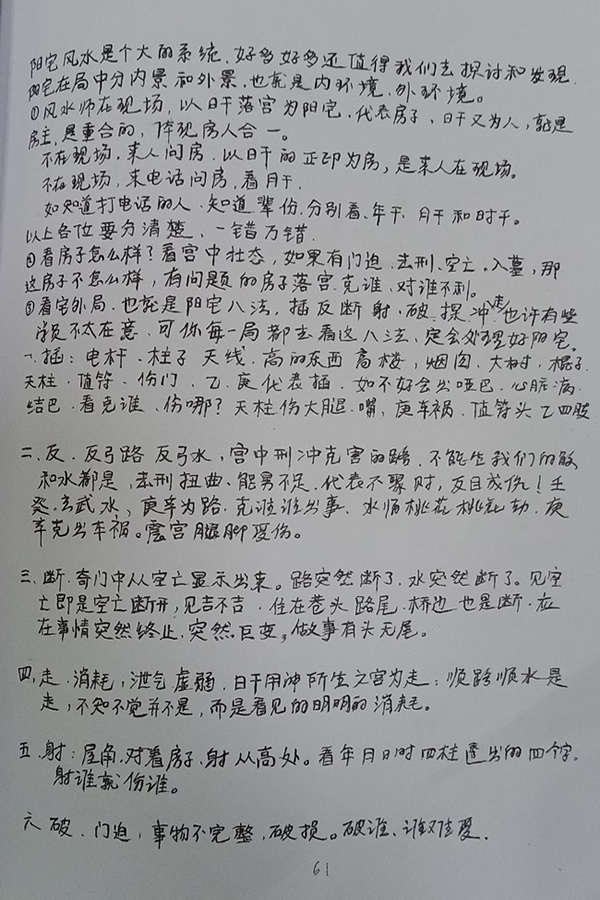 阳宅风水是个大的系统、好多好多还值得我们去探讨和发现.
阳宅在局中分内景和外景.也就是内环境、外环境。
①风水师在现场,以日干落宫为阳宅.代表房子,日干又为人,就是
房主,是重合的,体现房人合一。
不在现场.来人问房.以日干的正印为房,是来人在现场。
不在现场,来电话问房,看月干.
如知道打电话的人.知道辈份.分别看、年干,月干和时干。
以上各位要分清楚、一错万错.
②看房子怎么样?看宫中壮态,如果有门迫.击刑、空亡.入墓,那
这房子不怎么样,有问题的房子落宫.克谁、对谁不利。
③看宅外局.也就是阳宅八法,插反断射.破.探冲走也许有些
学员不太在意.可你每一局都去看这八法,定会处理好阳宅。
一.插:电杆.柱子 天线.高的东西 高楼,烟囱、大树,棍子.
天柱.值符.伤门、乙.庚代表插.如不好会出哑巴.心脏病.
结巴.看克谁、伤哪?天柱伤大腿.嘴,庚车祸.值符头乙四肢
二、反.反弓路 反弓水,宫中刑冲克害的路.不能生我们的
和水都是,击刑扭曲、能量不足.代表不聚财,反目成仇!壬
癸.玄武水,庚辛为路.克谁谁出事、水师桃花桃花劫.庚
辛克出车祸。震宫腿脚受伤。
三、断.奇门中从空亡显示出来。路突然断了.水突然断了。见空
亡即是空亡断开,见吉不吉.住在巷头路尾.桥边也是断.应
在事情突然终止.突然.巨变,做事有头无尾。
四,走.消耗,泄气虚弱.日干用神所生之宫为走:顺路顺水是
走,不知不觉并不是,而是看见的明明的消耗。
五.射:屋角.对着房子.射从高处。看年月日时四柱透出的四个字.
射谁就伤谁。
六 破.门迫,事物不完整,破损。破谁、谁难受.
61